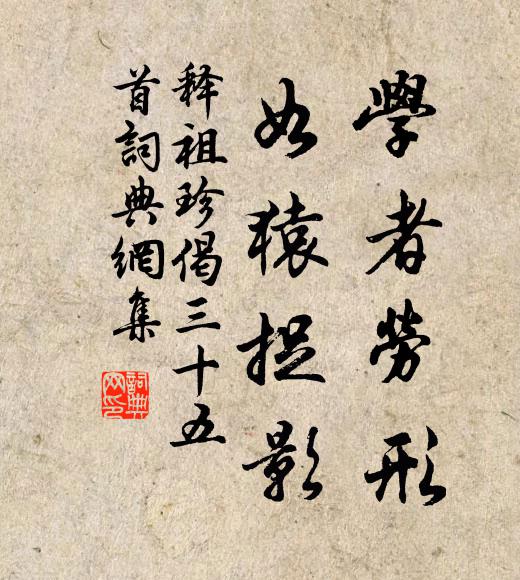 學者勞形
如猿捉影
释祖珍偈三十五
首詞典網集
詞典
网印